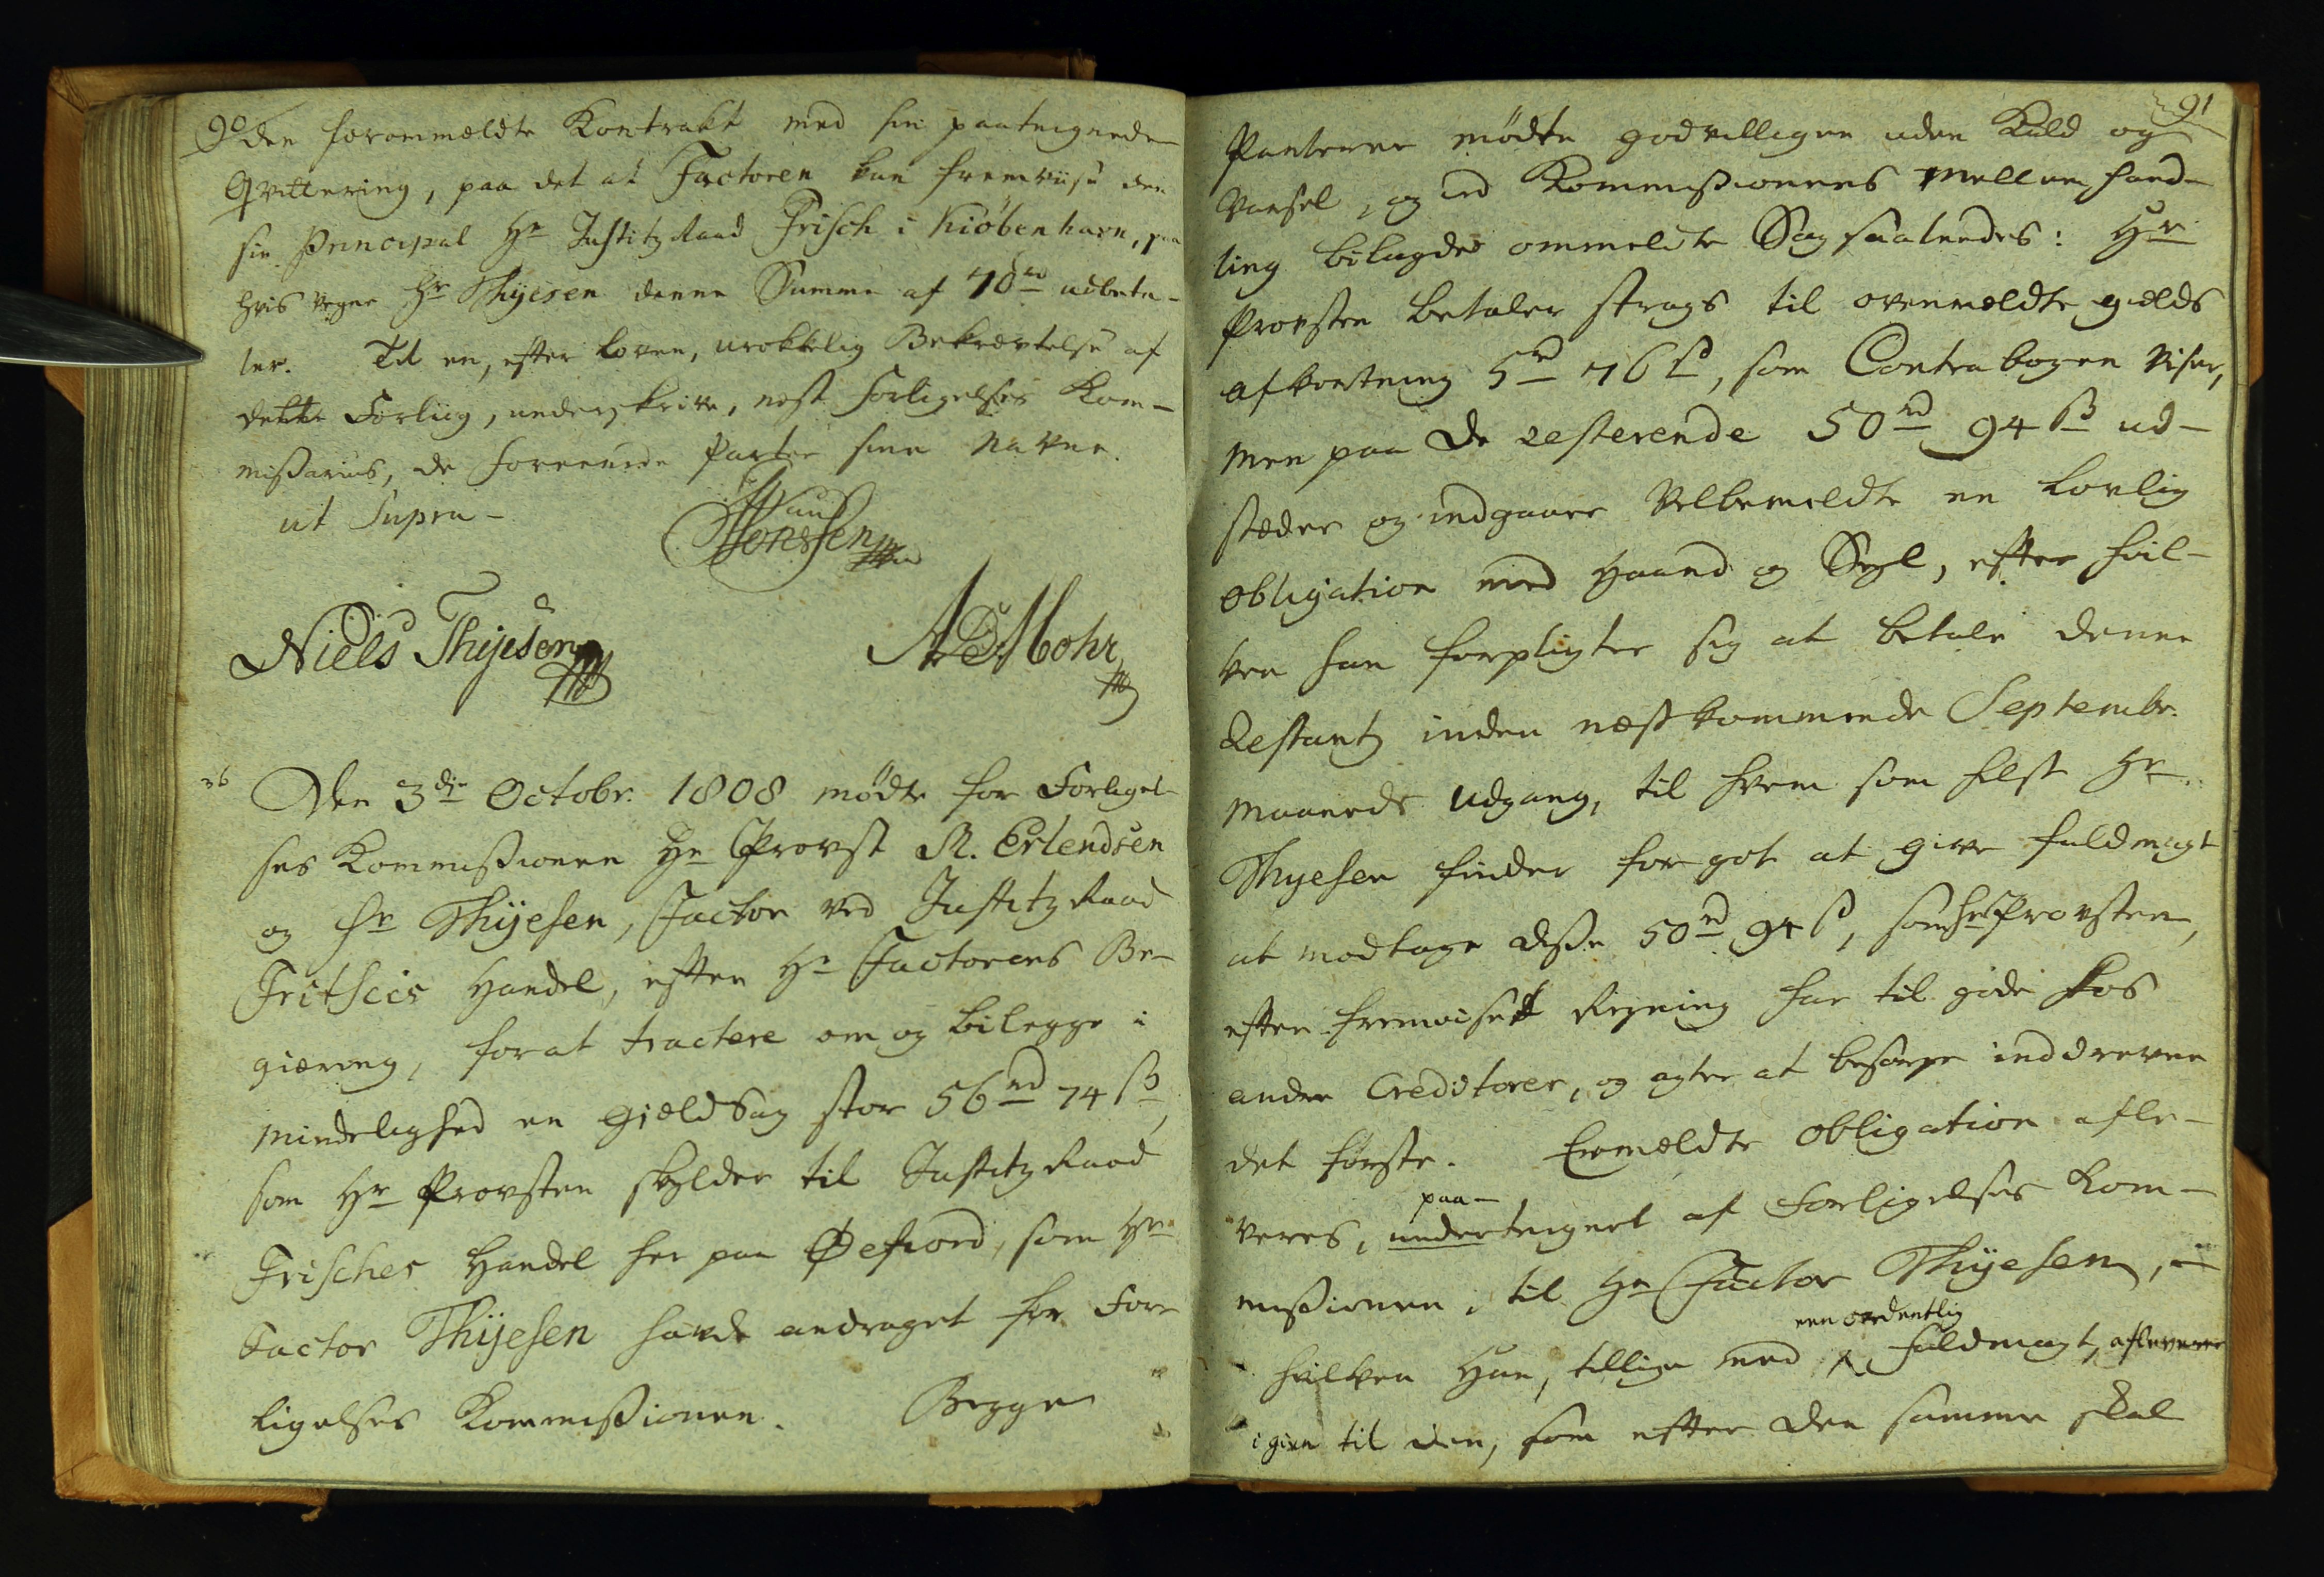 90
den forommældte Kontrakt med sin paateignede
Qvittering, paa det at Factoren kan fremviise den
sin Principal Hr Justitz Raad Frisch i Kiöbenhavn, paa
hvis vegne Hr Thyesen denne Summe af 70 rd udbeta-
ler. Til en, efter Loven, urokkelig Bekræftelse af
dette Forliig, underskrive, næst Forligelses Kom-
missarius, de foreenede Parter sine Navne.
ut Supra -
Jonssen
Niels Thyesen
Mohr
26
Den 3die Octobr. 1808 mödte for Forligel-
ses Kommissionen Hr Provst M. Erlendsen
og Hr Thyesen, Factor ved Justitz Raad
Fritscis Handel, efter Hr Factorens Be-
giæring, for at tractere om og bilegge i
Mindelighed en Gjeldsag stor 56 rd 74 ß,
som Hr Provsten skylder til Justitz Raad
Frisches Handel her paa Øefiord, som Hr
Factor Thyesen havde andraget for For-
ligelses Kommissionen. Begge
91
Parterne mödte godvilligen uden Kald og
Varsel, og ved Kommissionens Mellem hand-
ling bilagdes ommeldte Sag saaledes: Hr
Provsten betaler strags til ovenmeldte gields
afkortning 5 rd 76 ß, som Contrabogen viser,
men paa de resterende 50 rd 94 ß ud-
stæder og indgaaer Velbemeldte en Lovlig
Obligation med Haand og Segl, efter hvil-
ken han forpligter sig at betale denne
Restantz inden næstkommende Septembr.
Maaneds Udgang, til hvem som helst Hr
Thyesen finder for got at give fuldmagt
at modtage disse 50 rd 94 ß, som Hr Provsten,
efter fremviset Regning har til gode hos
andre Creditorer, og agter at besørge inddreven
det förste. Ermældte Obligation afle-
veres, undertegnet af Forligelses Kom-
paa-
missionen, til Hr Factor Thyesen,
hvilken Han, tillige med Fuldmagt, afleverer
een ordentlig
igien til den, som efter den samme skal